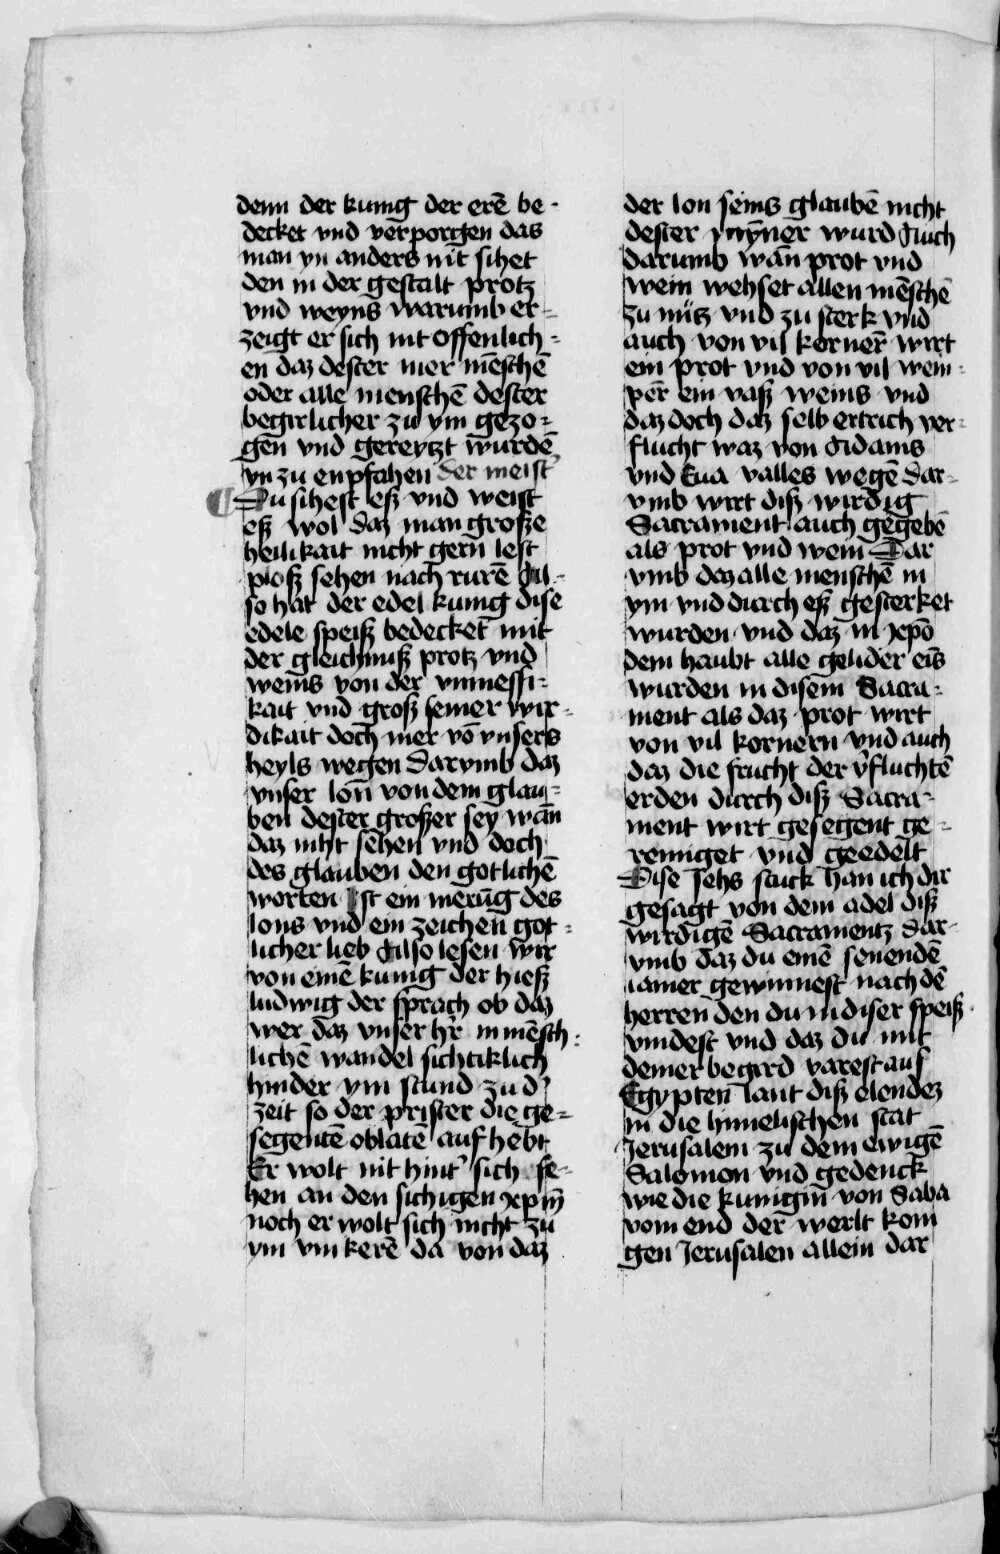 denn der kunig der erē be-
decket vnd verporgen das
man yn anders nit sihet
den in der gestalt protz
vnd weyns warumb er-
zeigt er sich nit offenlich-
en daz dester mer mēschē
oder alle menschē dester
begirlicher zu ym gezo-
gen vnd gereytzt wurdē
yn zu enpfahen der meist'
¶ Du sihest esz vnd weist
esz wol daz man grosze
heilikait nicht gern lest
plosz sehen nach rurē Al-
so hat der edel kunig dise
edele speisz bedecket mit
der gleichnusz protz vnd
weins von der vnmessi-
kait vnd grosz seiner wir-
dikait doch mer vō vnsers
heyls wegen Darvmb daz
vnser lon von dem glau-
ben dester groszer sey wān
daz niht sehen vnd doch
des glauben den gotlichē
worten Ist ein merūg des
lons vnd ein zeichen got-
licher lieb Also lesen wir
von einē kunig der hiesz
ludwig der sprach ob daz
wer daz vnser h'r in mēsch-
lichē wandel sichtiklich
hinder ym stund zu d'
zeit so der prister die ge-
segentē oblatē auf hebt
Er wolt nit hint' sich se-
hen an den sichigen xpm̄
noch er wolt sich nicht zu
ym vm kerē da von daz
der lon seins glaubē nicht
dester mȳner wurd Auch
darumb wān prot vnd
wein wehset allen mēschē
zu nütz vnd zu sterk vnd
auch von vil korner̄ wirt
ein prot vnd von vil wein-
per̄ ein vasz weins vnd
daz doch daz selb ertrich ver-
flucht waz von Adams
vnd Eua valles wegē Dar-
vmb wirt disz wirdig
Sacrament auch gegebē
als prot vnd wein Dar
vmb daz alle menschē in
ym vnd durch esz gesterket
wurden vnd daz in xpō
dem haubt alle gelider eīs
wurden in disem Sacra-
ment als daz prot wirt
von vil kornern vnd auch
daz die frucht der v'fluchtē
erden durch disz Sacra-
ment wirt gesegent ge-
reiniget vnd geedelt
Dise sehs stuck han ich dir
gesagt von dem adel disz
wirdigē Sacramentz Dar-
vmb daz du einē senendē
iamer gewinnest nach dē
herren den du in diser speisz
vindest vnd daz du mit
deiner begird varest auf
Egypten lant disz elendez
in die himelischen stat
Jerusalem zu dem ewigē
Salomon vnd gedenck
wie die kunigin von Saba
vom end der werlt kom
gen Jerusalen allein dar